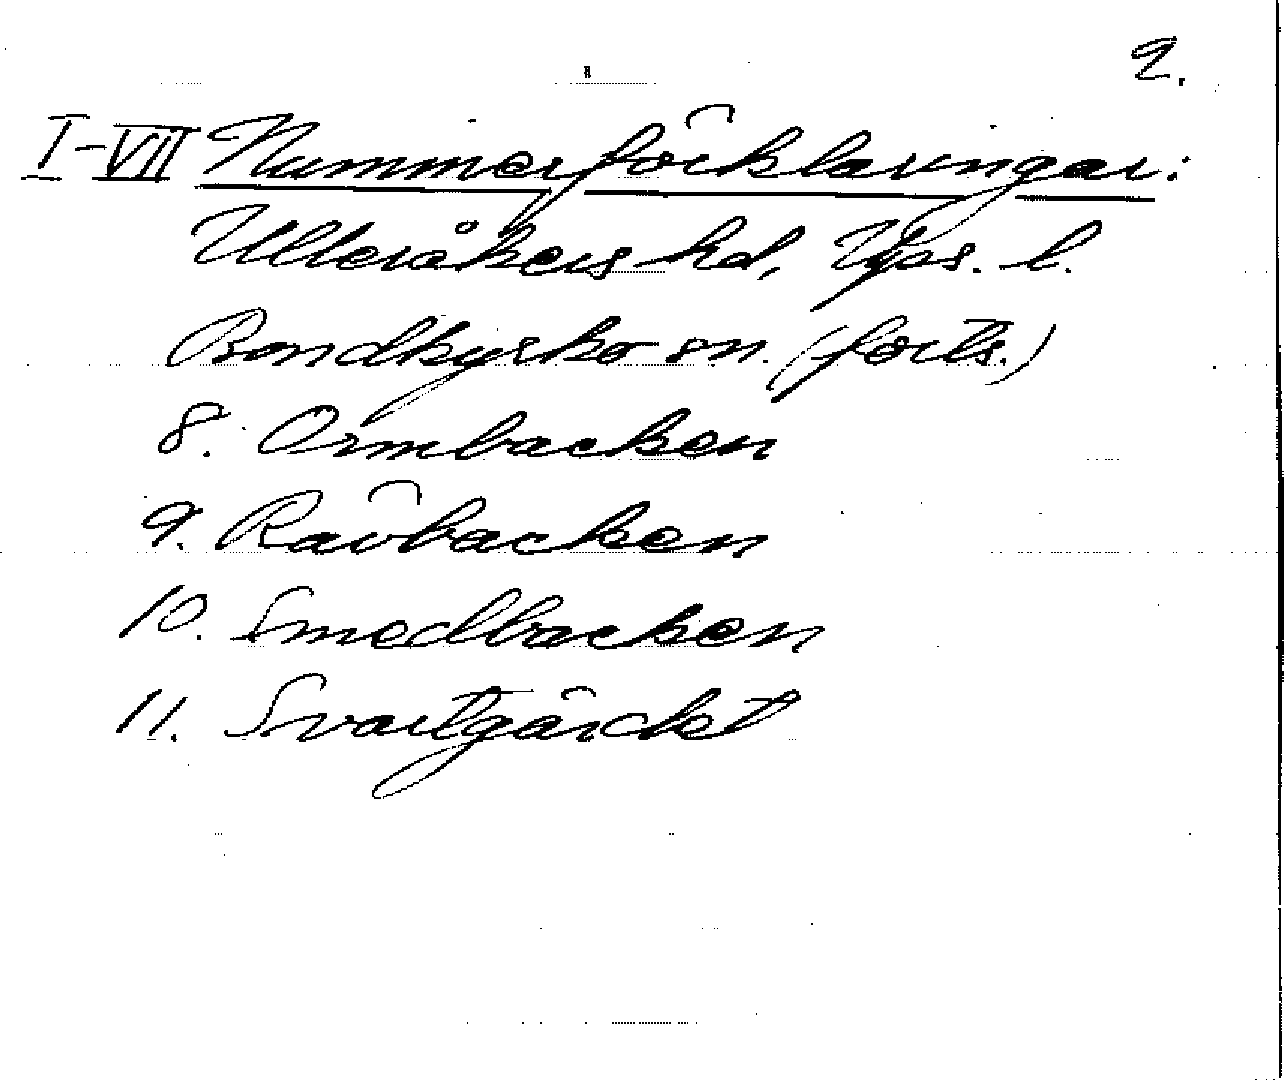 2.
I-VII Nummerförklaringar:
Ulleråkers hd, Ups. l.
Bondkyrko sn. (forts.)
8. Ormbacken
9. Rävbacken
10. Smedbacken
11. Svartgärdet